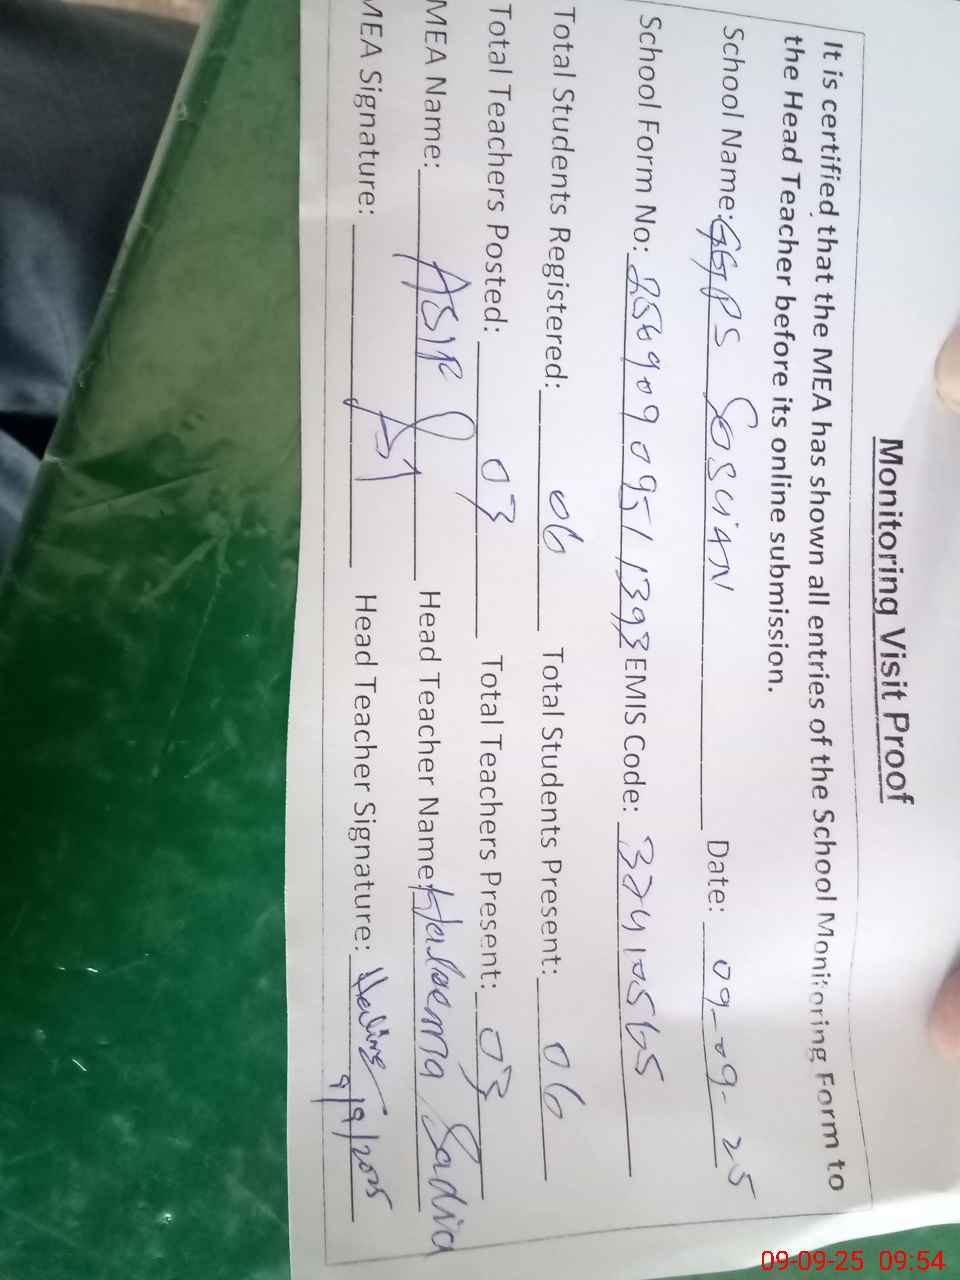 Monitoring Visit Proof
It is certified that the MEA has shown all entries of the School Monitoring Form to
the Head Teacher before its online submission.
School Name: GGPS Sosian Date: 09-09-25
School Form No: 2569090951393 EMIS Code: 32410565
Total Students Registered: 06 Total Students Present: 06
Total Teachers Posted: 03 Total Teachers Present: 03
MEA Name: ASIF Head Teacher Name: Haleema Sadia
MEA Signature: Head Teacher Signature:
9/9/2025
09-09-25 09:54